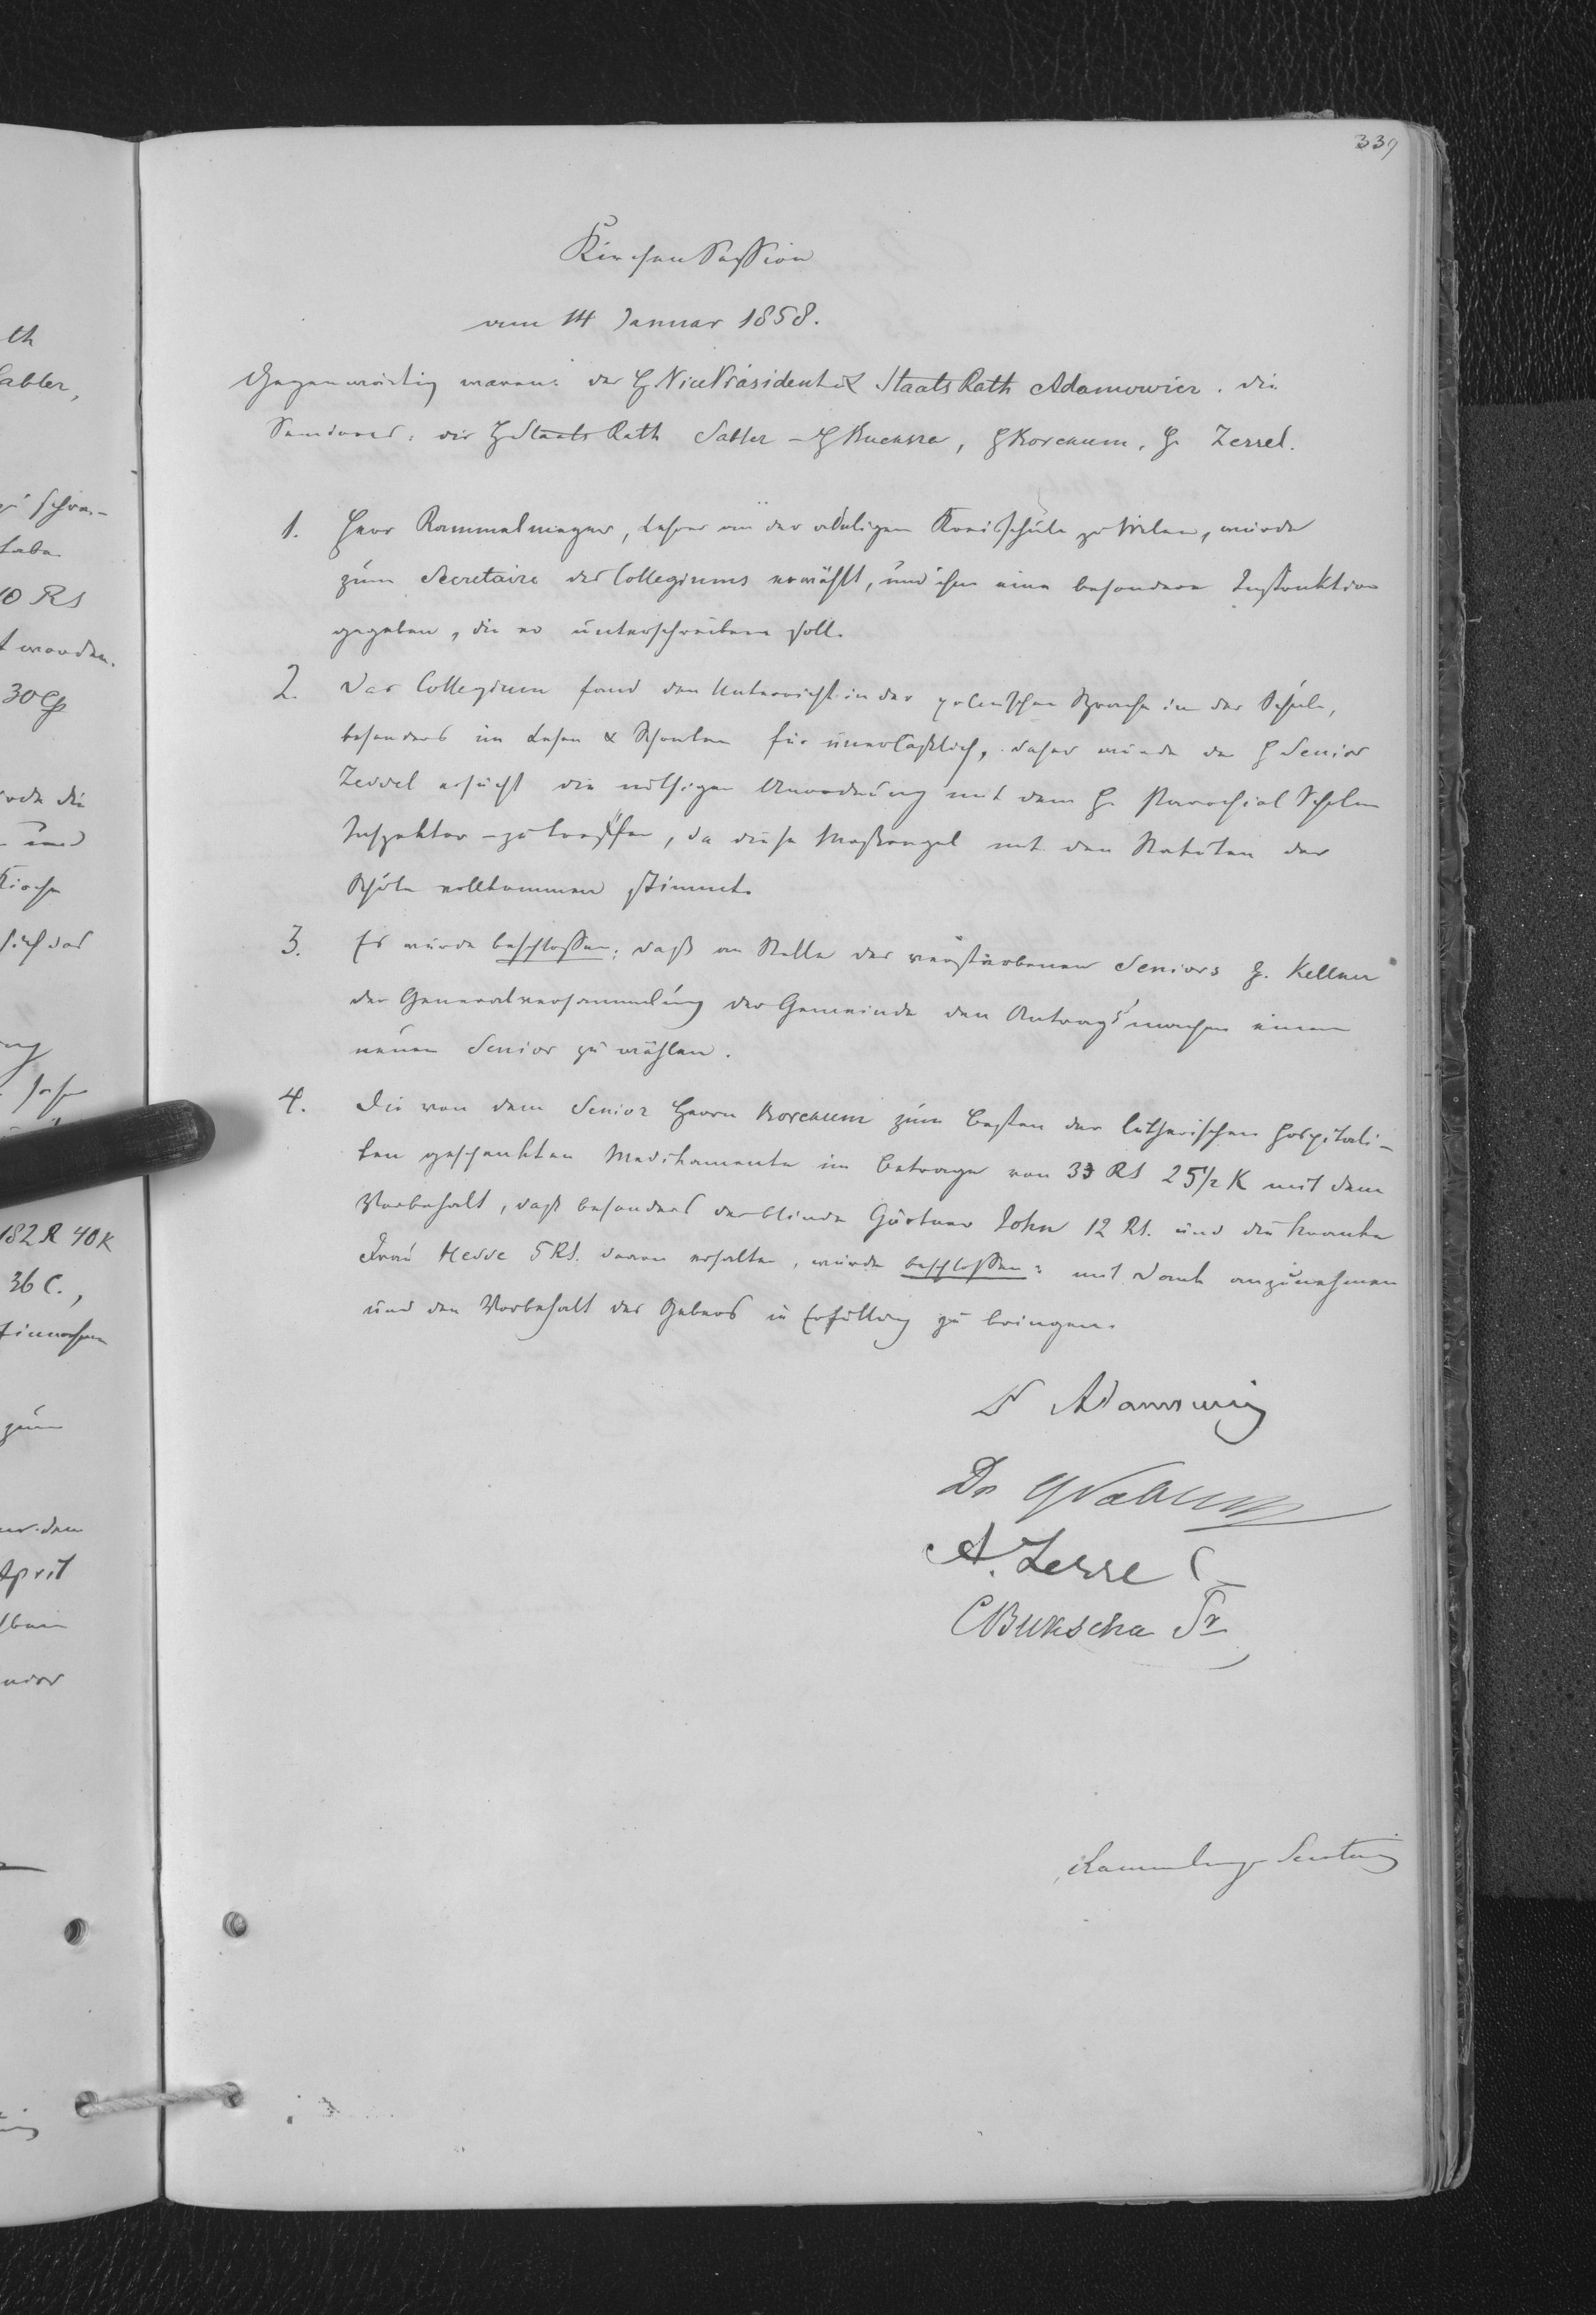 339
Kirchen Session
vom 14 Januar 1858.
Gegenwärtig waren: der H VicePräsident & StaatsRath Adamowicz. die
Senioren: der H StaatsRath Sabler - H Bucksza, H Korchum, H. Zessel.
1. Herr Rammelmeyer, Lehrer an der adeligen Kreisschule zu Wilna, wurde
zum Secretaire des Collegiums erwählt, und ihm eine besondere Instruktion
gegeben, die er unterschreiben soll.
2. Das Collegium fand den Unterricht in der polnischen Sprache in der Schule,
besonders im Lesen & Schreiben für unerläßlich, daher wurde der H Senior
Zessel ersucht die nöthigen Anordnung mit dem H. Parochial Schulen
Inspektor zu treffen, da diese Maßregel mit den Statuten der
Schule vollkommen stimmt.
3. Es wurde beschlossen: daß an Stelle des verstorbenen Seniors H. Kellner
der Generalversammlung der Gemeinde den Antrag zu machen einen
neuen Senior zu wählen.
4. Die von dem Senior Herrn Korchum zum Besten der lutherischen Hospitali-
ten geschenkten Medikamente im Betrage von 33 RS 25 1/2 K mit dem
Vorbehalt, daß besonders der blinde Gärtner John 12 RS. und die kranke
Frau Hesse 5 RS. davon erhalten, wurde beschlossen: mit Dank anzunehmen
und den Vorbehalt des Gebers in Erfüllung zu bringen.
Adamowicz
Dr GSabler
A. Zessel
CBukscha Sr
Secretair
th
abler,
10 RS
t worden.
Kirche
182 R 40 K
36 C.,
Einnahmen
zum
April